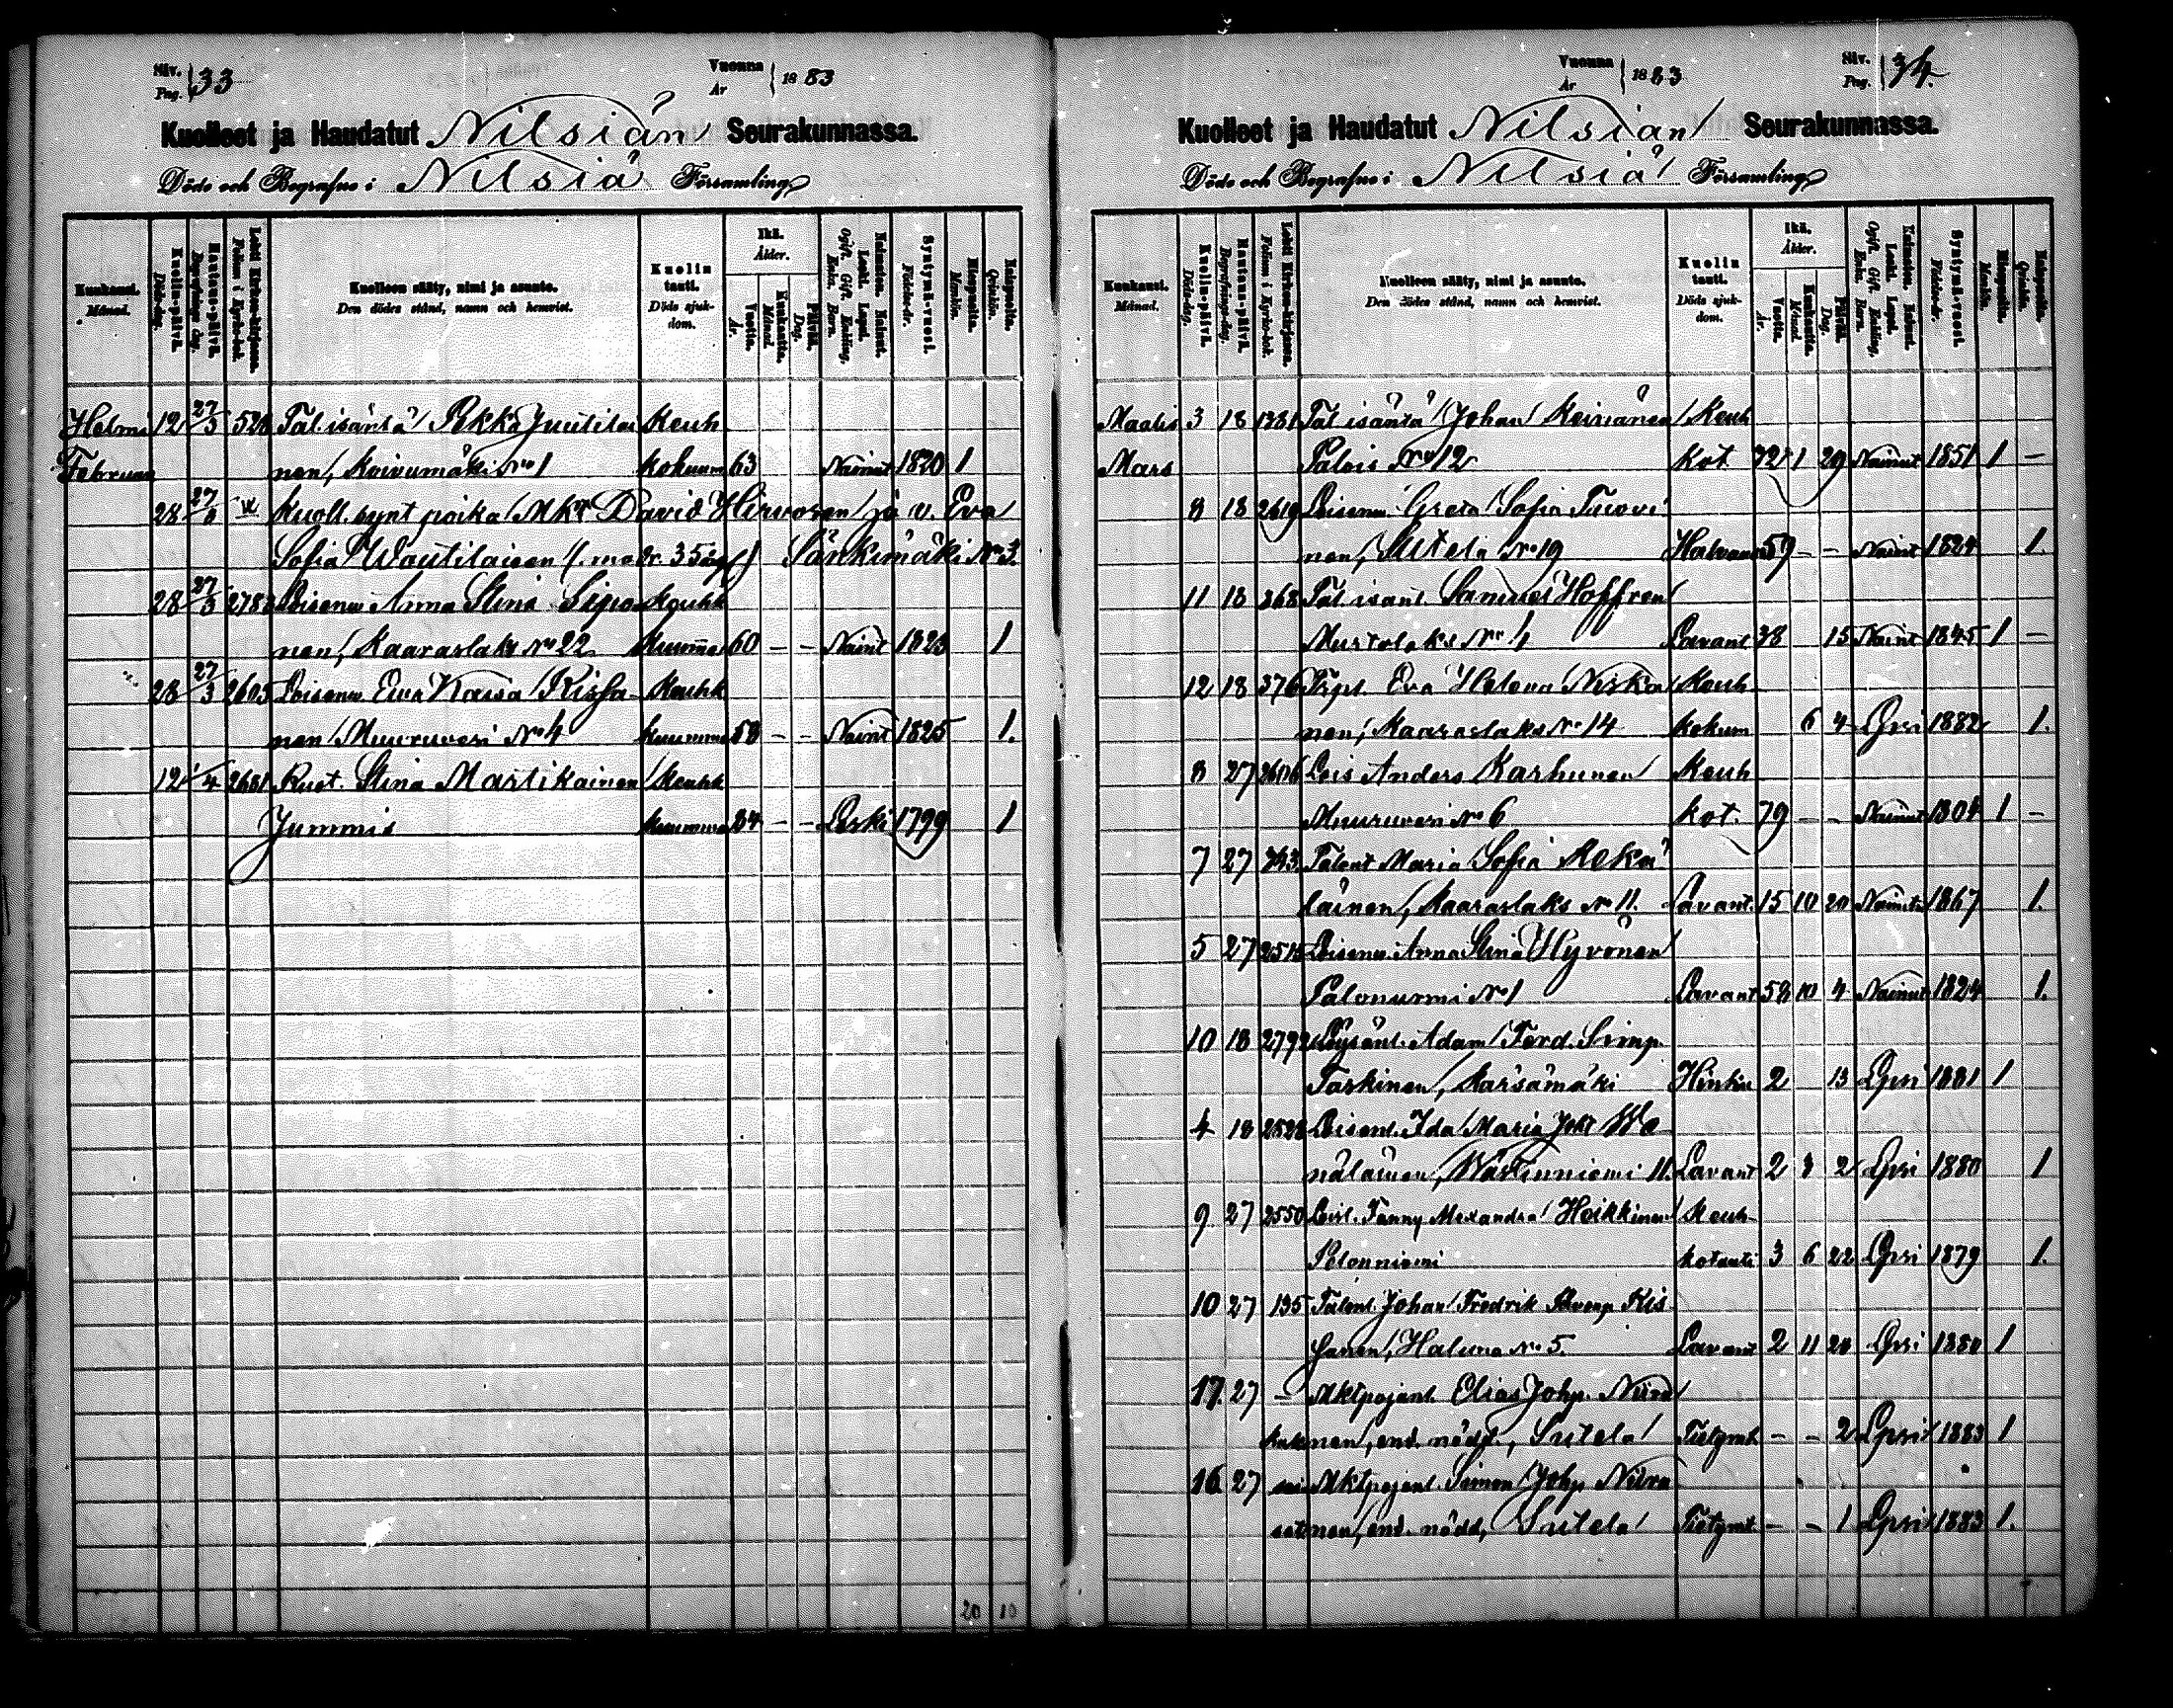 Siv. Pag. 33 Vuonna År 1883
Kuolleet ja Haudatut Nilsiän Seurakunnassa.
Döde och Begrafne i Nilsiä Församling
Kuukausi. Månad.
Kuolin-päivä. Döds-dag.
Hautaus-päivä. Begrafnings-dag.
Lehti Kirkon-kirjassa. Folium i Kyrko-bok.
Kuolleen sääty, nimi ja asunto.
Den dödes stånd, namn och hemvist.
Kuolin tauti. Döds sjukdom.
Ikä. Ålder.
Vuotta. År.
Kuukautta. Månad.
Päivää. Dag.
Naimaton. Nainut. Leski. Lapsi.
Ogift. Gift. Enkling. Enka. Barn.
Syntymä-vuosi. Födelse-år.
Miespuolia. Mankön.
Vaimopuolia. Qvinkön.
Helmi 12 27/3 528 Tal. isäntä Pekka Juutilai Keuh
Februari nen, Koivumäki No 1 kokuum 63 Nainut 1820 1
28 27/3 Kuoll. synt poika Mkt David Hirvosen ja v. Eva
Sofia Woutilaisen (modr. 35 åg) Sänkimäki No 3.
28 27/3 2783 Loisenv. Anna Stina Sipo Keuhk
nen, Kaaraslaks No 22 kuumme 60 - - Nainut 1823 1
28 27/3 2605 Loisenv. Eva Kaisa Rissa- Keuhk
nen Muuruvesi No 4 kuumme 58 - - Nainut 1825 1.
12 1/4 2681 Ruot. Stina Martikainen Keuhk
Jummis kuumme 84 - - Leski 1799 1
20 10
Vuonna År 1883 Siv. Pag. 34.
Kuolleet ja Haudatut Nilsiän Seurakunnassa.
Döde och Begrafne i Nilsiä Församling
Kuukausi. Månad.
Kuolin-päivä. Döds-dag.
Hautaus-päivä. Begrafnings-dag.
Lehti Kirkon-kirjassa. Folium i Kyrko-bok.
Kuolleen sääty, nimi ja asunto.
Den dödes stånd, namn och hemvist.
Kuolin tauti. Döds sjukdom.
Ikä. Ålder.
Vuotta. År.
Kuukautta. Månad.
Päivää. Dag.
Naimaton. Nainut. Leski. Lapsi.
Ogift. Gift. Enkling. Enka. Barn.
Syntymä-vuosi. Födelse-år.
Miespuolia. Mankön.
Vaimopuolia. Qvinkön.
Maalis 3 18 1231 Tal isäntä Johan Keinänen Keuh
Mars Palois No 12 kot 1 29 Nainut 1851 1 -
8 18 2619 Loisenv. Greta Sofia Tuovi
nen, Sutela No 19 Halvaus 59 - - Nainut 1824 1.
11 18 368 Tal. isänt. Samuel Hoffren
Murtolaks No 1 Lavant 38 15 Nainut 1845 1 -
12 18 376 Eva Helena Niska Keuh
nen, Kaaraslaks No 14 kokum 6 4 Lpsi 1882 1.
8 27 2606 Lois Anders Karhunen Keuh
Muuruvesi No 6 kot. 79 - - Nainut 1804 1 -
7 27 Talont Maria Sofia
läinen, Kaaraslaks No 11. Lavant. 15 10 20 1867 1.
5 27 2515 Loisenv. Anna Stina Hyvönen
Palonurmi No 1 Lavant 58 10 4 Nainut 1824 1.
10 18 2792 Adam Ferd. Simp.
Taskinen, Karsämäki Hinku 2 13 Lpsi 1881 1
4 18 2528 Loisent. Ida Maria Joht We
näläinen, Västinniemi 11. Lavant 2 3 2 Lpsi 1880 1
9 27 2550 Loisl. Fanny Alexandra Heikkinen Keuh
Pelonniemi kotauti 3 6 22 Lpsi 1879 1.
10 27 135 Talonl. Johan Fredrik Kis
sanen, Haluna No 5. Lavant 2 11 20 Lpsi 1880 1
17. 27 - Mktpojanl. Elias Johp. Niira
nen, end. nödd., Sutela Tietymt. - - 2 Lpsi 1883 1
16 27 Mktpojanl. Simon Johp Niira
nen, end. nödd, Sutela Tietymt. - - 1 Lpsi 1883 1.